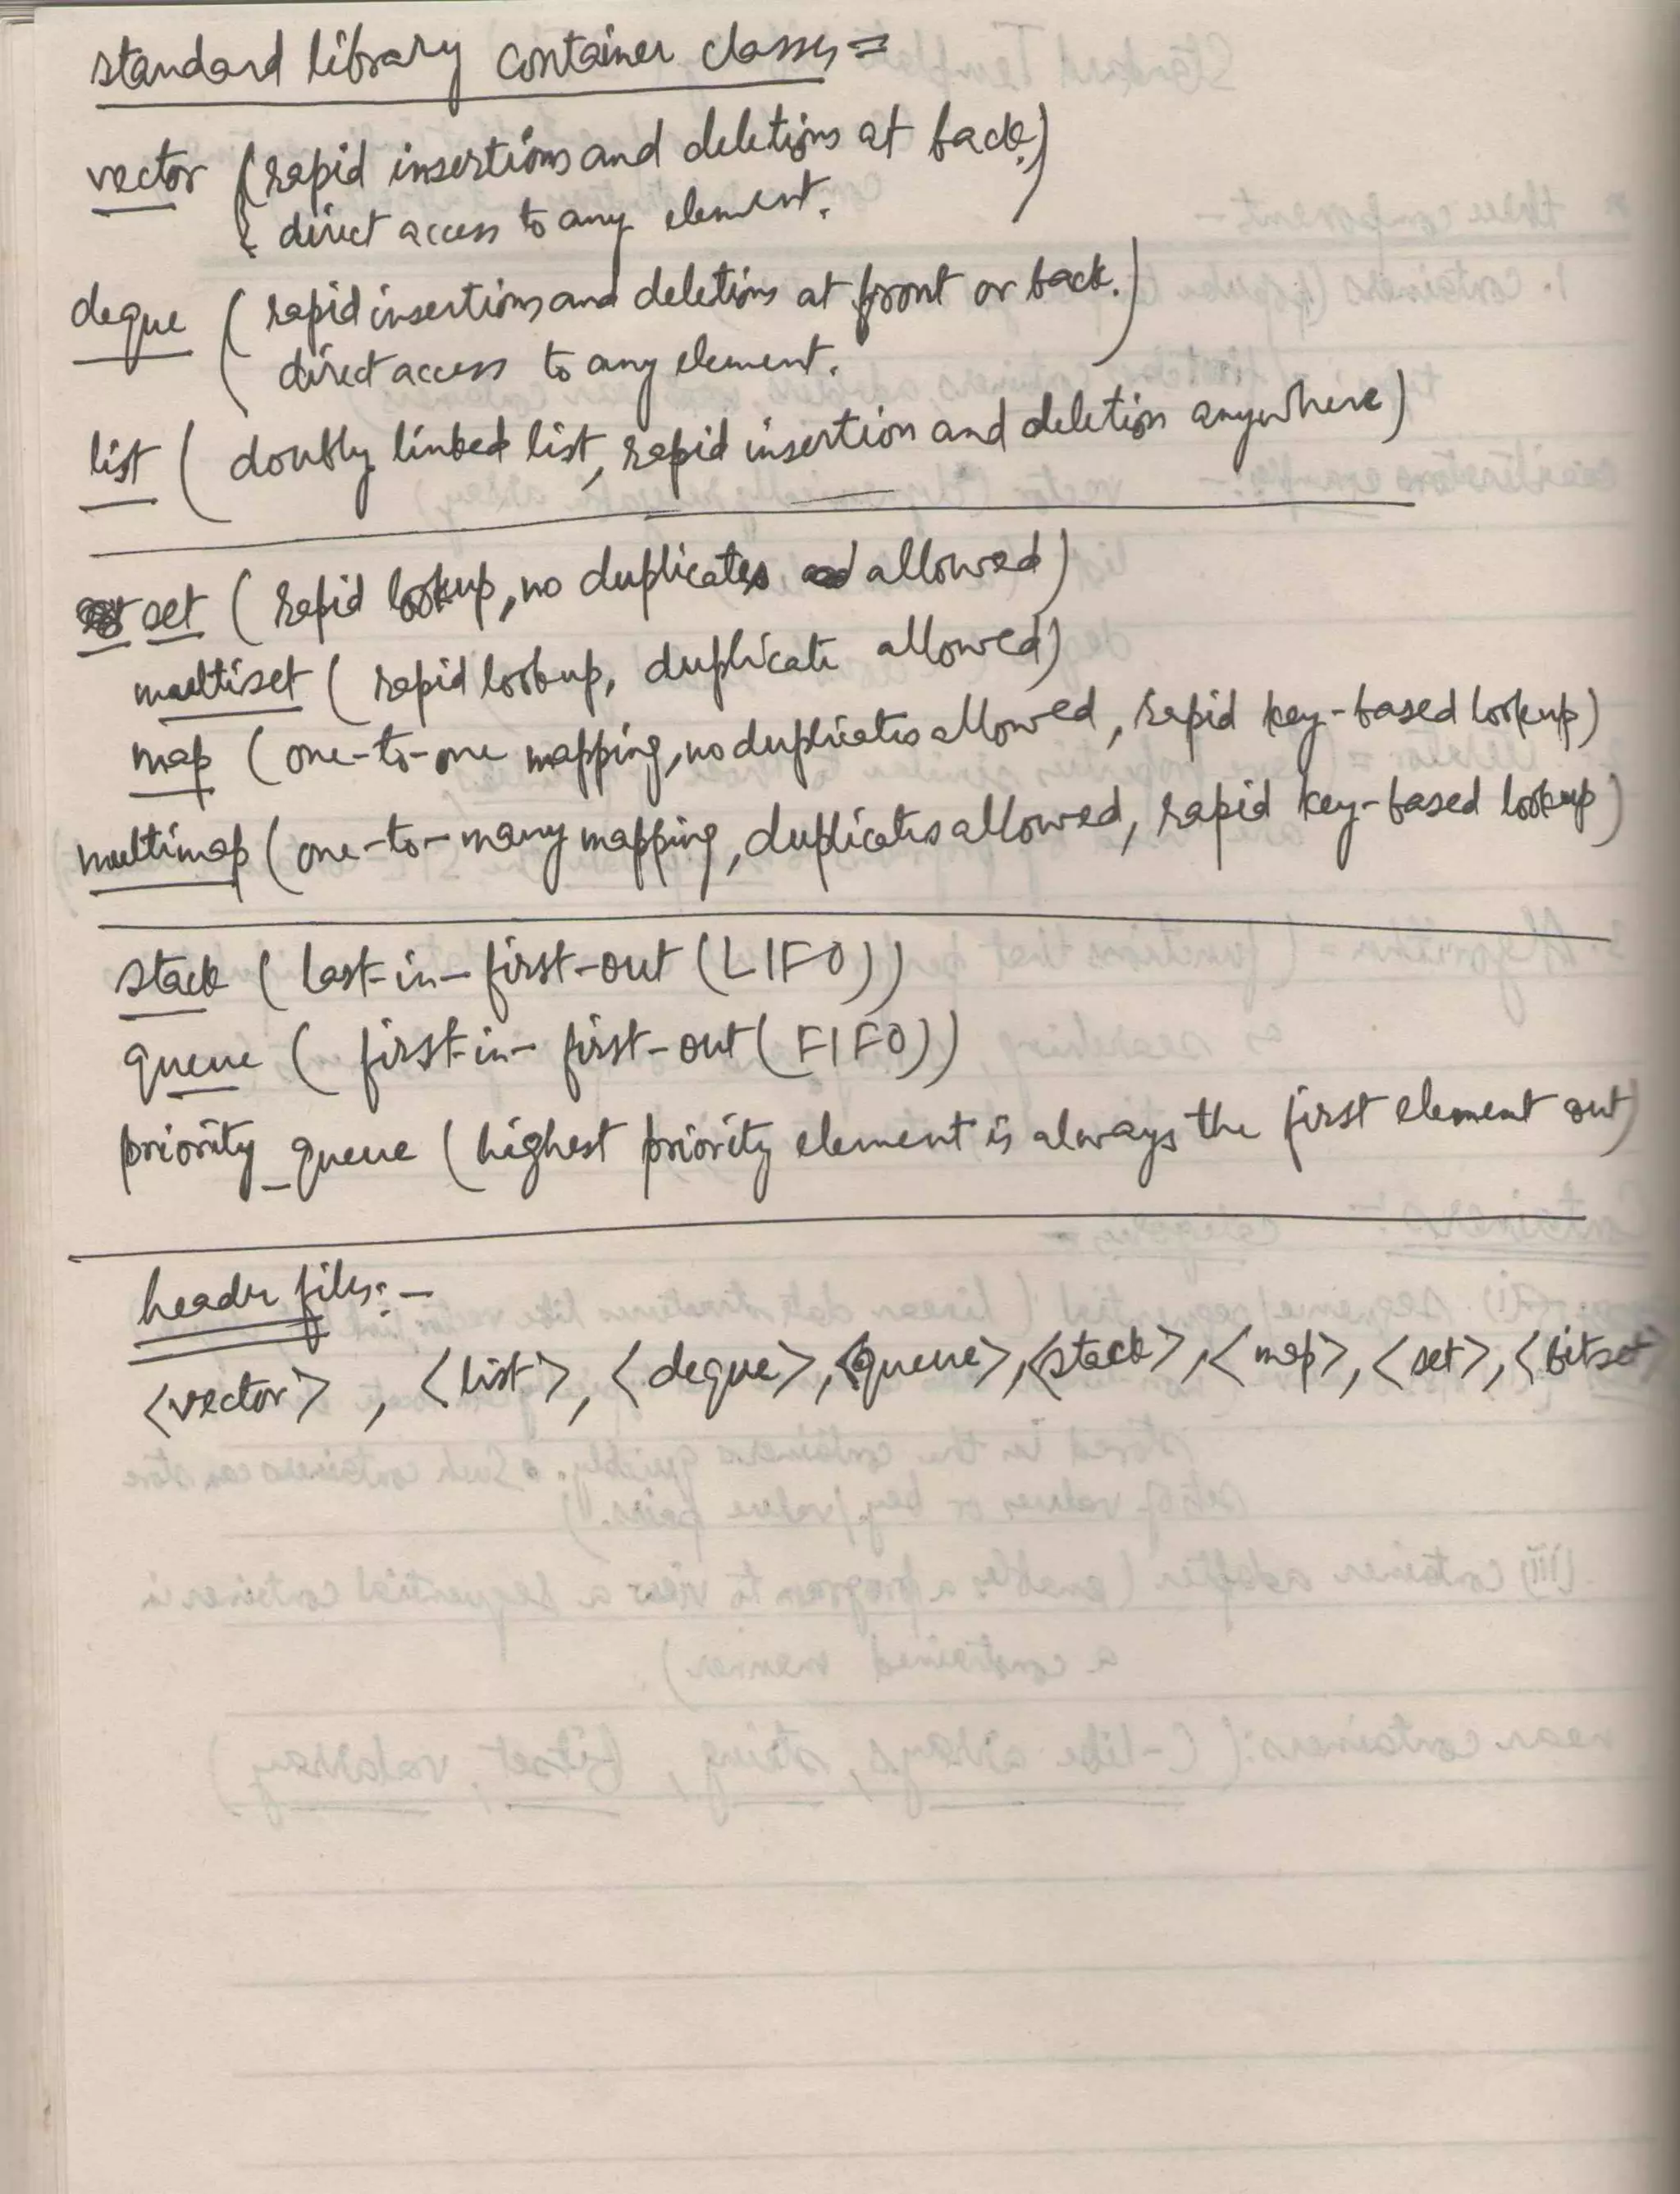 standard library container classes =
vector (rapid insertions and deletions at back.)
direct access to any element.
deque (rapid insertions and deletions at front or back.)
direct access to any element.
list (doubly linked list, rapid insertion and deletion anywhere)
set (rapid lookup, no duplicates allowed)
multiset (rapid lookup, duplicate allowed)
map (one-to-one mapping, no duplicates allowed, rapid key-based lookup)
multimap (one-to-many mapping, duplicates allowed, rapid key-based lookup)
stack (last-in-first-out (LIFO))
queue (first-in-first-out (FIFO))
priority_queue (highest priority element is always the first element out)
header files:-
<vector>, <list>, <deque>, <queue>, <stack>, <map>, <set>, <bitset>